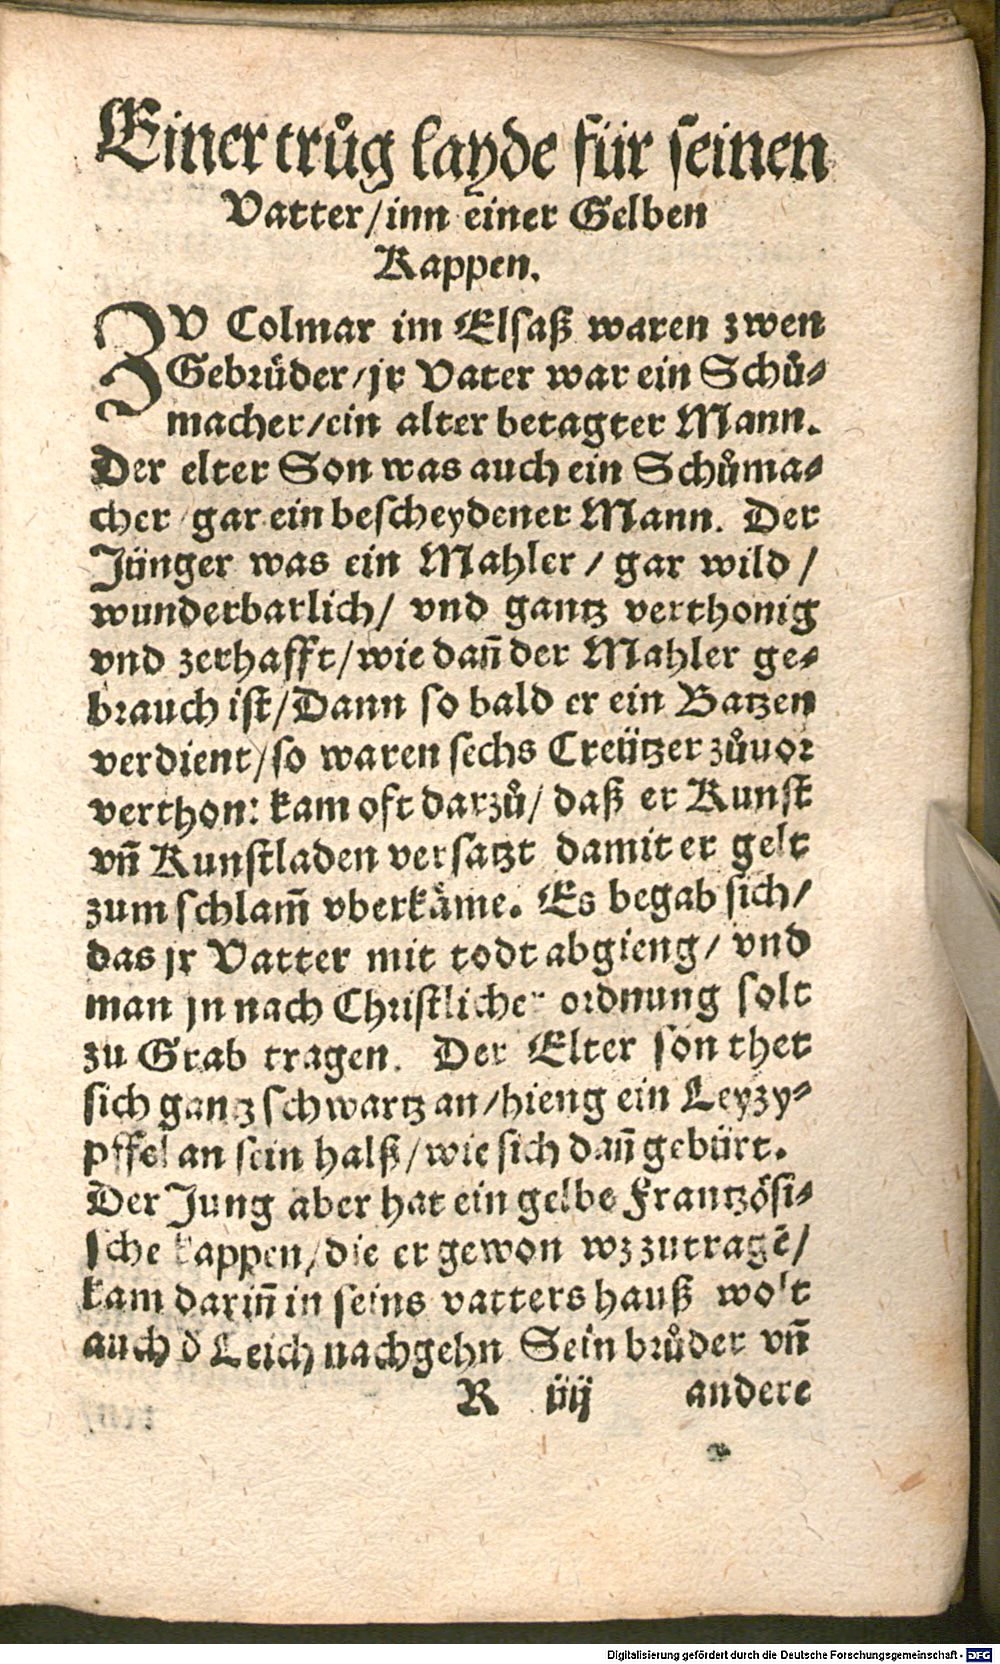 Einer trůg layde für seinen
Vatter/ inn einer Gelben
Kappen.
ZV Colmar im Elsaß waren zwen
Gebrüder/ jr Vater war ein Schů⸗
macher/ ein alter betagter Mann.
Der elter Son was auch ein Schůma⸗
cher/ gar ein bescheydener Mann. Der
Jünger was ein Mahler/ gar wild/
wunderbarlich/ vnd gantz verthonig
vnd zerhafft/ wie dañ der Mahler ge⸗
brauch ist/ Dann so bald er ein Batzen
verdient/ so waren sechs Creützer zůuor
verthon: kam oft darzů/ daß er Kunst
vñ Kunstladen versatzt damit er gelt
zum schlam̃ vberkäme. Es begab sich/
das jr Vatter mit todt abgieng/ vnd
man jn nach Christlicher ordnung solt
zu Grab tragen. Der Elter son thet
sich gantz schwartz an/ hieng ein Leyzy⸗
pffel an sein halß/ wie sich dañ gebürt.
Der Jung aber hat ein gelbe Frantzösi⸗
sche kappen/ die er gewon wz zutragẽ/
kam dariñ in seins vatters hauß wolt
auch d Leich nachgehn Sein brůder vñ
R iiij andere
Digitalisierung gefördert durch die Deutsche Forschungsgemeinschaft - DFG